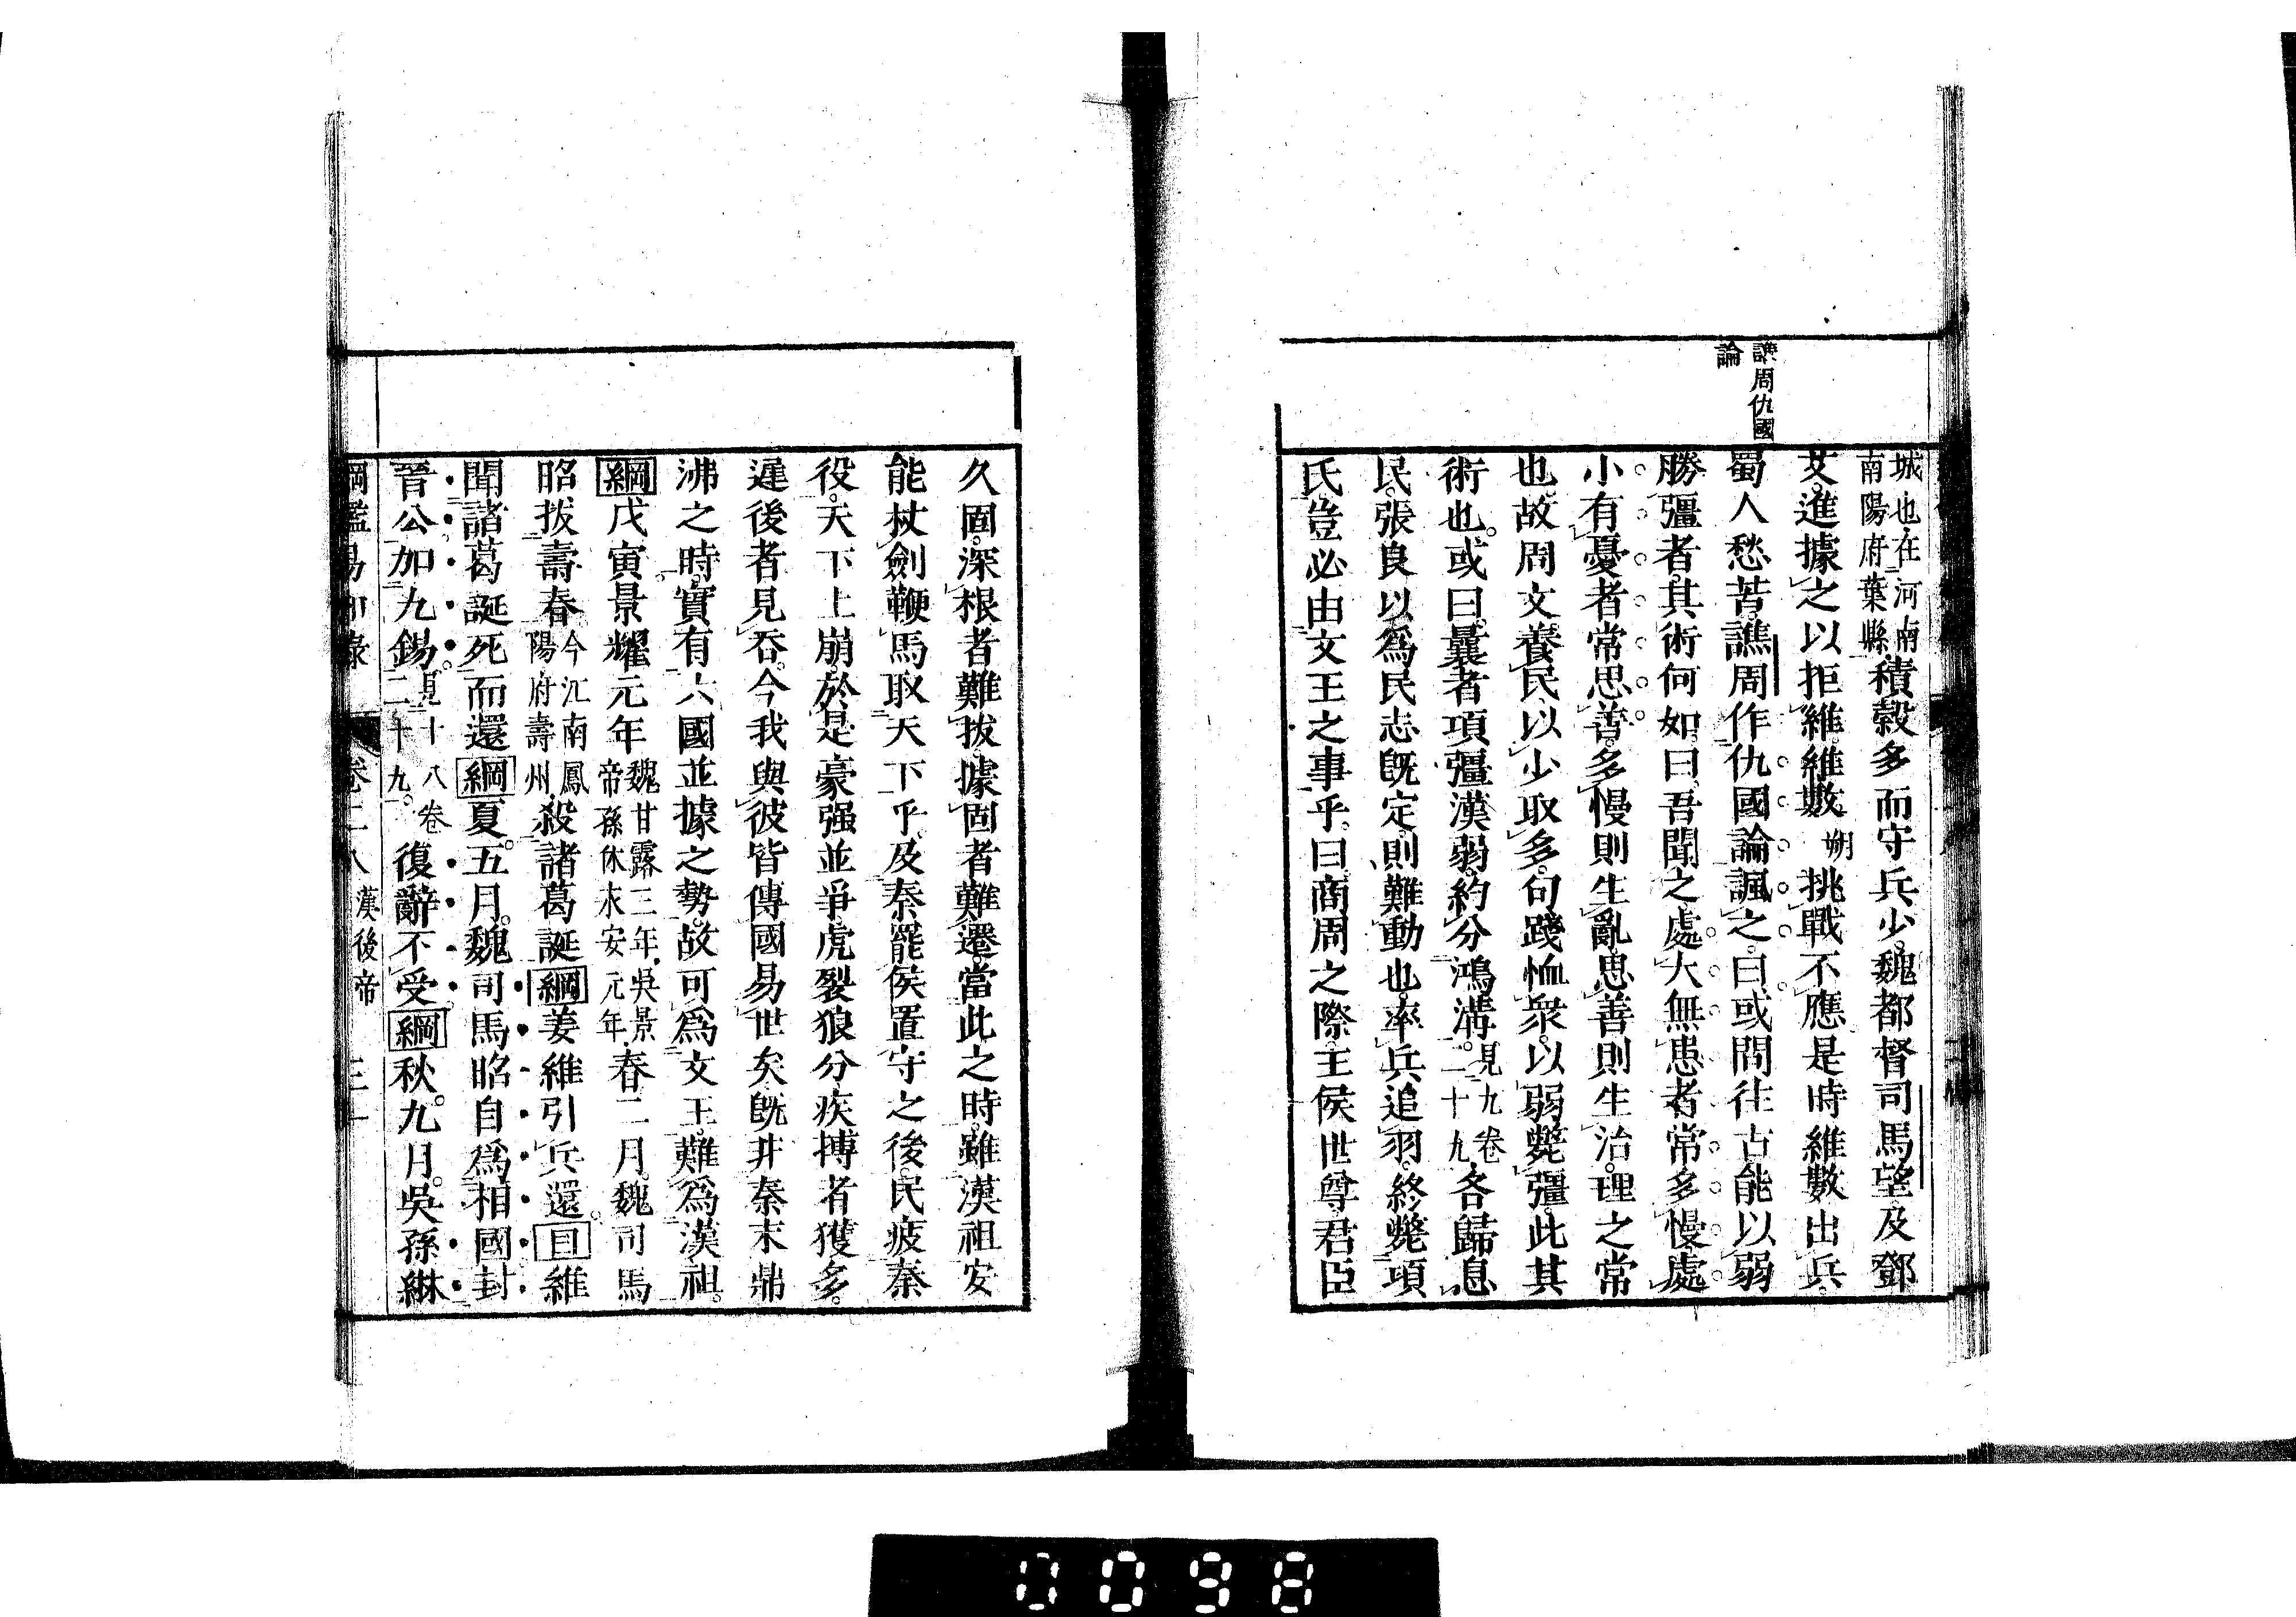 譙周仇國
論
城也在河南
南陽府葉縣積穀多而守兵少魏都督司馬望及鄧
艾進據之以拒維維數朔挑戰不應是時維數出兵
蜀人愁苦譙周作仇國論諷之曰或問往古能以弱
勝彊者其術何如曰吾聞之處大無患者常多慢處
小有憂者常思善多慢則生亂思善則生治理之常
也故周文養民以少取多句踐恤衆以弱斃彊此其
術也或曰曩者項彊漢弱約分鴻溝見九卷二十九各歸息
民張良以爲民志旣定則難動也率兵追羽終斃項
氏豈必由文王之事乎曰商周之際王侯世尊君臣
久固深根者難拔據固者難遷當此之時雖漢祖安
能杖劍鞭馬取天下乎及秦罷侯置守之後民疲秦
役天下土崩於是豪强並爭虎裂狼分疾搏者獲多
遲後者見吞今我與彼皆傳國易世矣旣非秦末鼎
沸之時實有六國並據之勢故可爲文王難爲漢祖
綱戊寅景耀元年魏甘露三年吳景帝孫休永安元年春二月魏司馬
昭拔壽春今江南鳳陽府壽州殺諸葛誕綱姜維引兵還目維
聞諸葛誕死而還綱夏五月魏司馬昭自爲相國封
晉公加九錫見十八卷二十九復辭不受綱秋九月吳孫綝
綱鑑易知錄 卷二八 漢後帝
0098